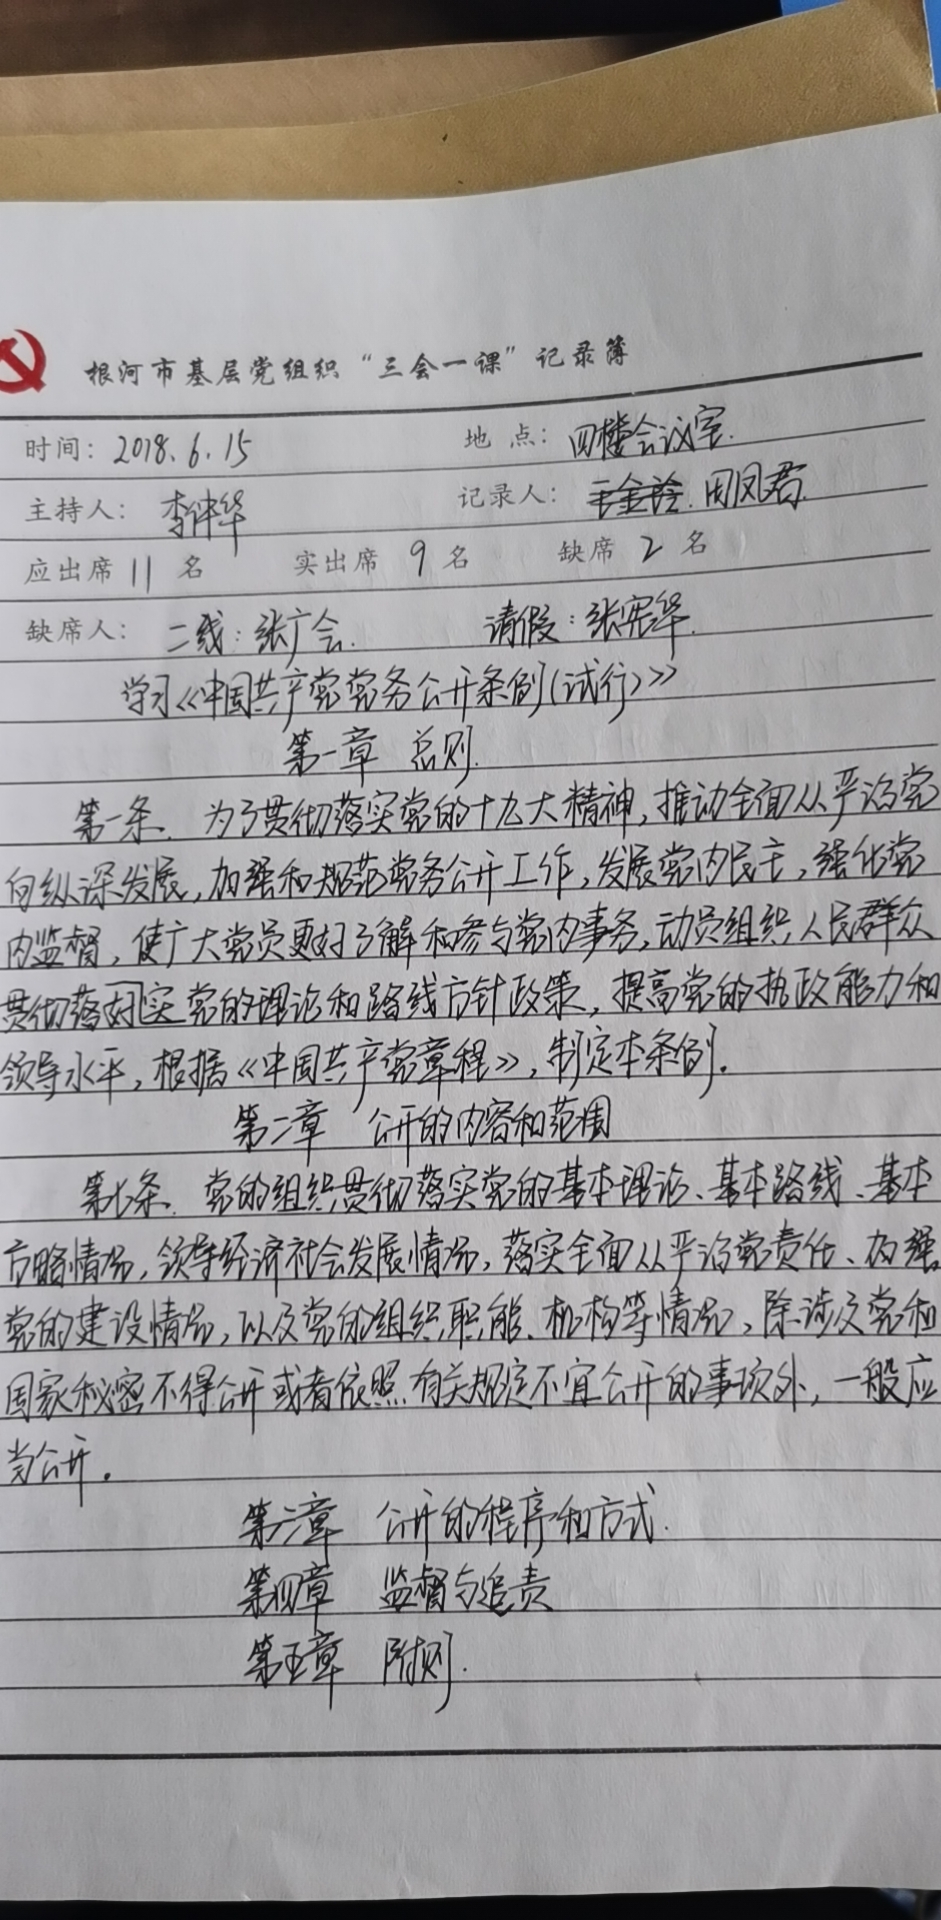 根河市基层党组织“三会一课”记录簿
时间：2018.6.15 地点：四楼会议室.
主持人：李仲华 记录人：王金玲.周凤君.
应出席11名 实出席9名 缺席2名
缺席人：二线：张广会. 请假：张宪华.
学习《中国共产党党务公开条例(试行)》
第一章 总则.
第一条. 为了贯彻落实党的十九大精神，推动全面从严治党
向纵深发展，加强和规范党务公开工作，发展党内民主，强化党
内监督，使广大党员更好了解和参与党内事务，动员组织人民群众
贯彻落实党的理论和路线方针政策，提高党的执政能力和
领导水平，根据《中国共产党章程》，制定本条例.
第二章 公开的内容和范围
第七条. 党的组织贯彻落实党的基本理论、基本路线、基本
方略情况，领导经济社会发展情况，落实全面从严治党责任、加强
党的建设情况，以及党的组织职能、机构等情况，除涉及党和
国家秘密不得公开或者依照有关规定不宜公开的事项外，一般应
当公开。
第三章 公开的程序和方式.
第四章 监督与追责
第五章 附则.